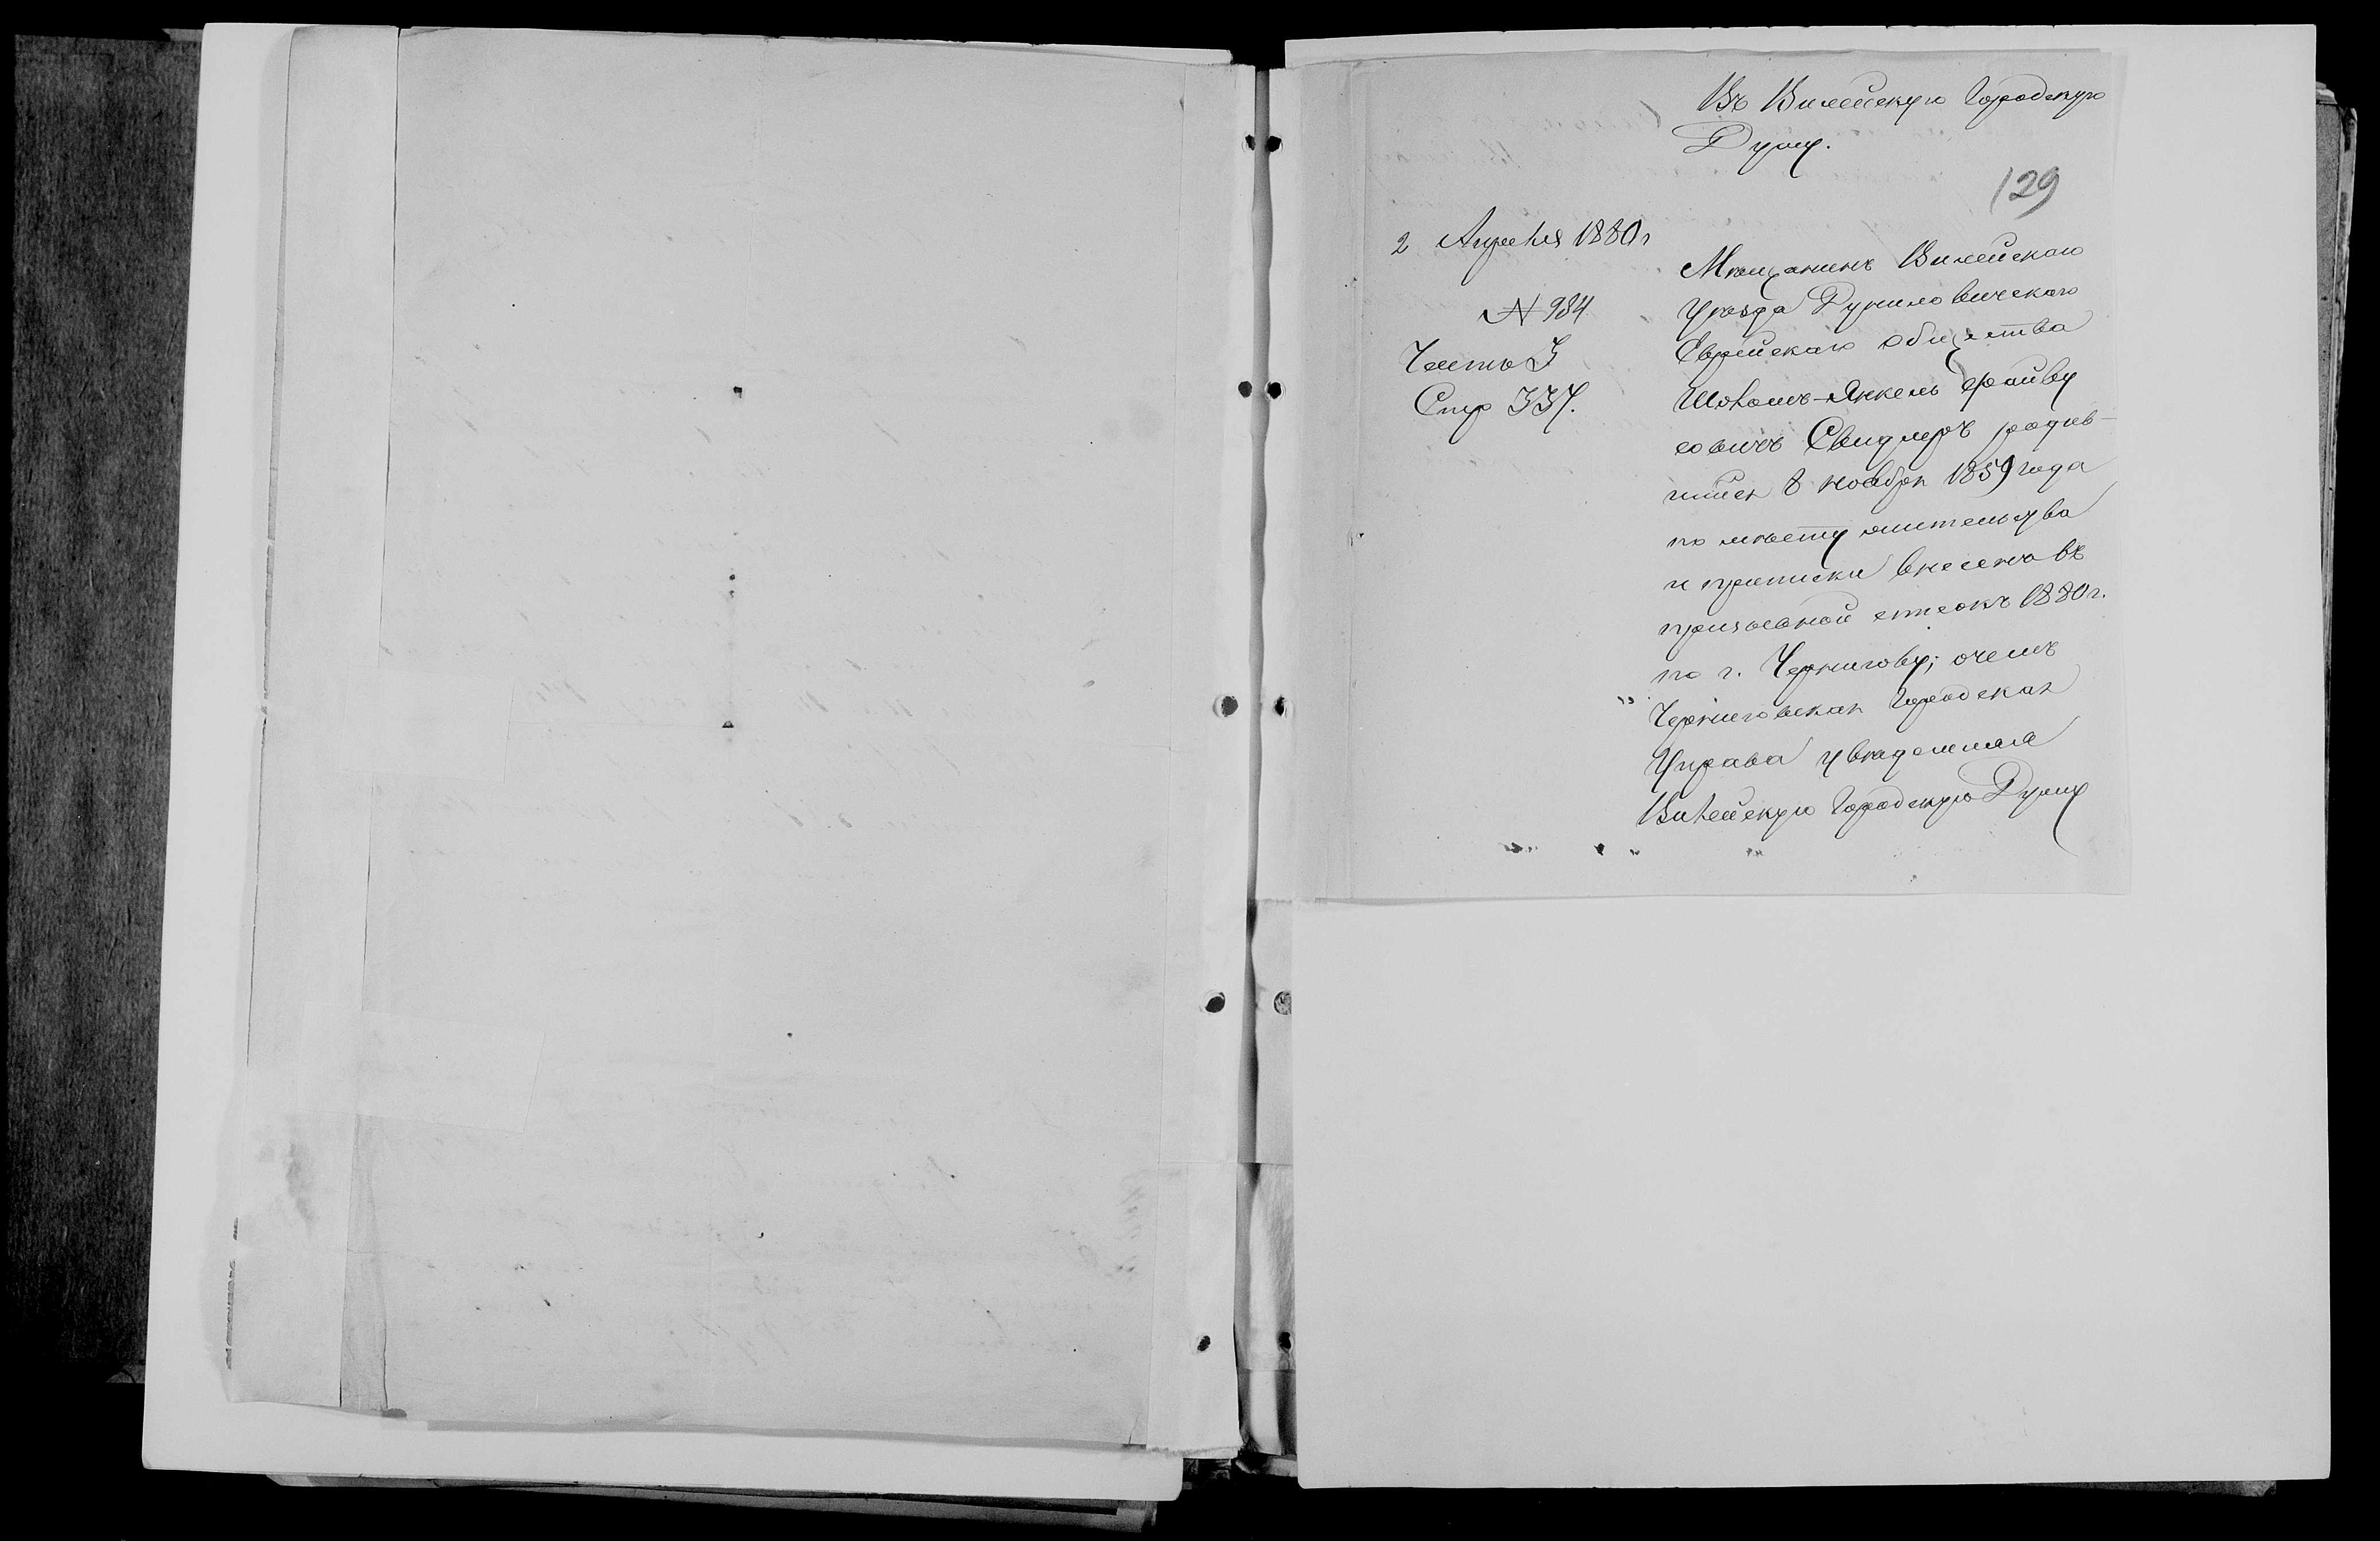 Въ Вилейскую Городскую
Думу.
129
2 Апреля 1880 г
№ 984
Часть I
Стр 337.
Мѣщанинъ Вилейскаго
Уѣзда Дуниловичскаго
Еврейскаго общества
Шоломъ-Янкель Файву
совичъ Свидлеръ родив-
шийся 8 ноября 1859 года
по мѣсту жительства
и приписки внесенъ въ
призывной списокъ 1880 г.
по г. Чернигову; о чемъ
Черниговская Городская
Управа увѣдомляла
Вилейскую Городскую Думу